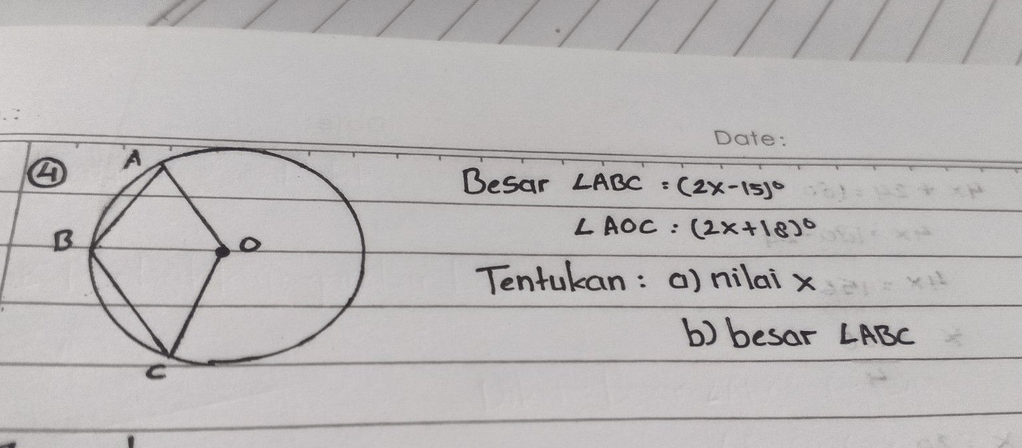 Date:
4
A
B
O
C
Besar ∠ABC = (2x-15)°
∠AOC : (2x+18)°
Tentukan : a) nilai x
b) besar ∠ABC